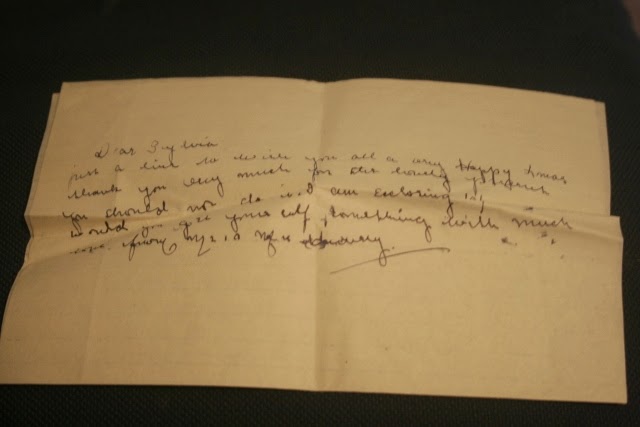 Dear Sylvia
just a line to wish you all a very Happy Xmas
thank you very much for the lovely present
you should not do it. I am enclosing
would you get your self something with much
love from Mr & Mrs